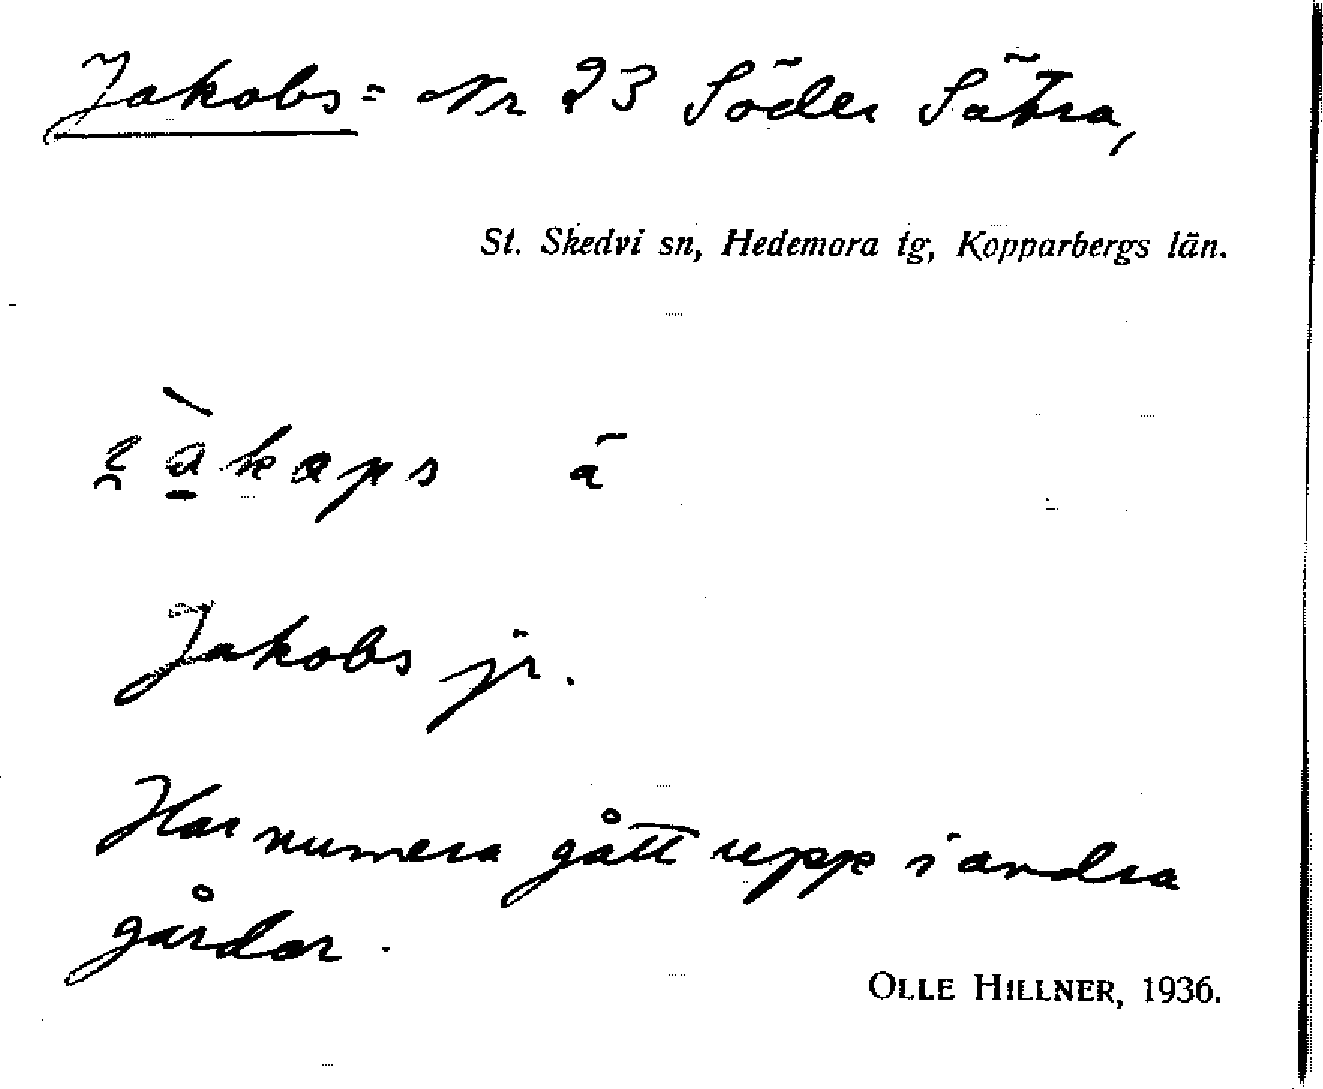 Jakobs = Nr 23 Söder Sätra,
St. Skedvi sn, Hedemora tg, Kopparbergs län.
kaps ä
Jakobs jr.
Har numera gått upp i andra
gårdar.
OLLE HILLNER, 1936.